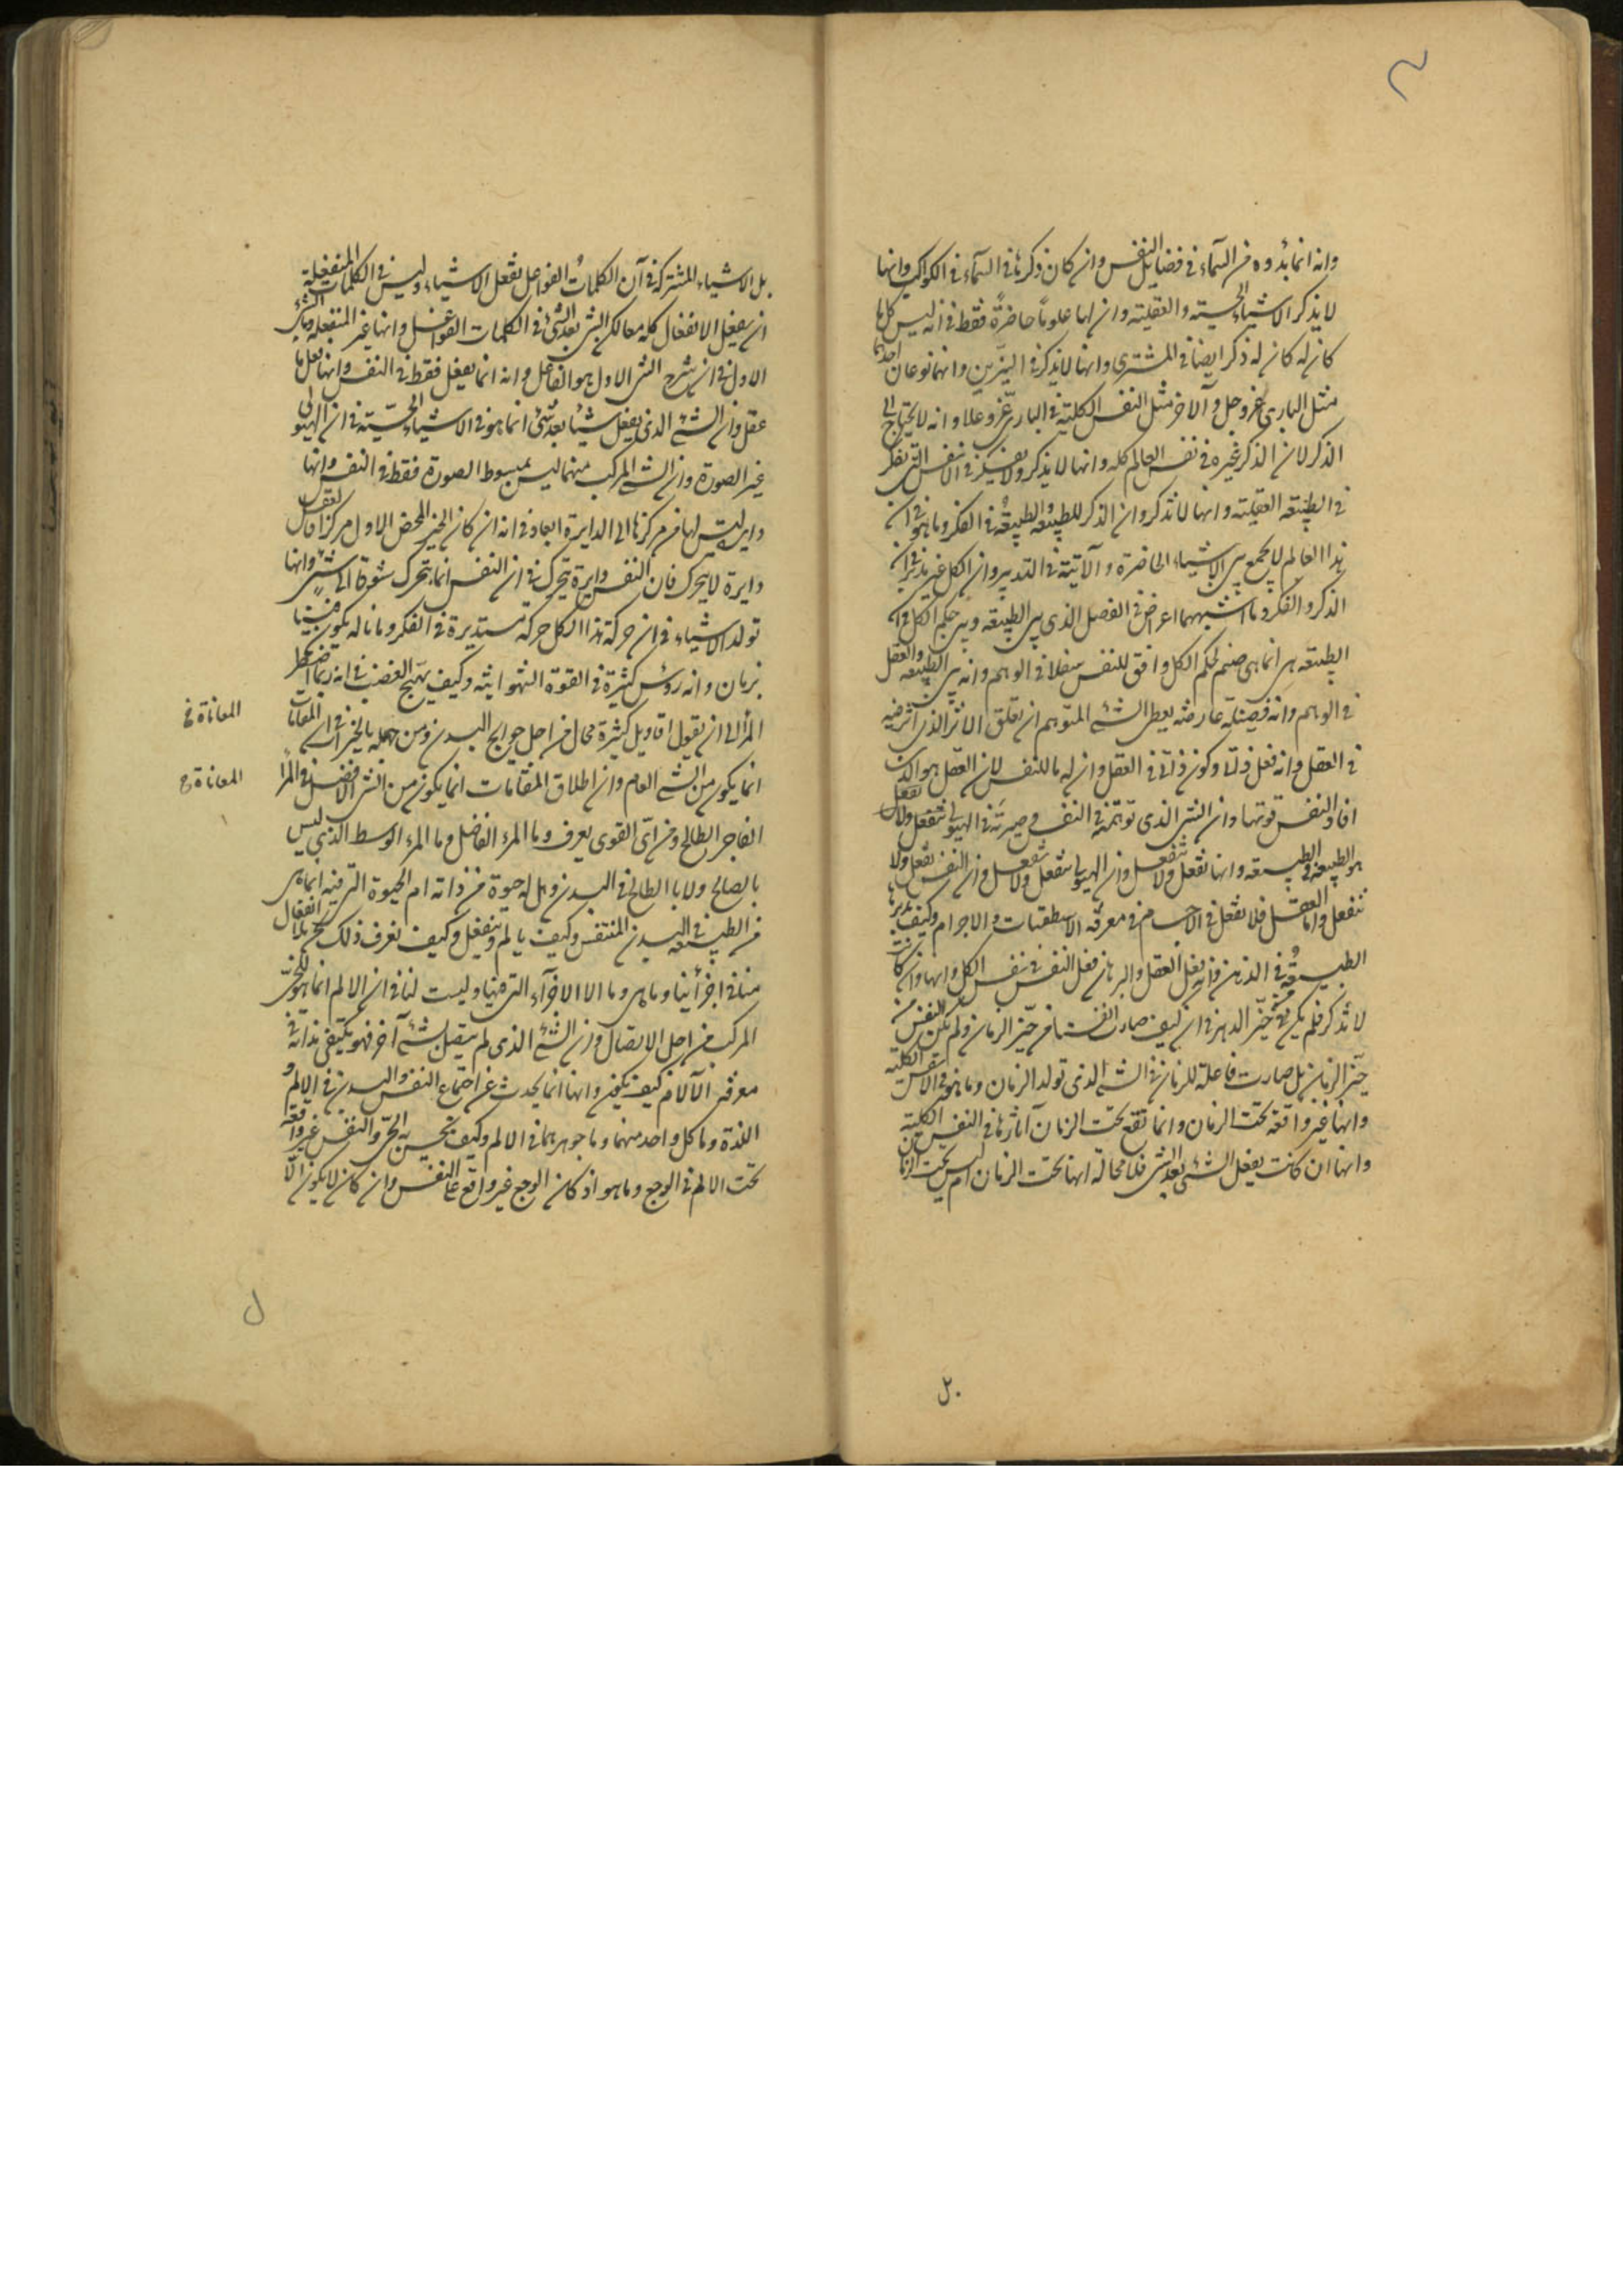 وانه انما بدوه من السماء في فضايل النفس وان كان ذكرها في السماء في الكواكب وانها
لا يذكر الاشياء الحسية والعقلية وان لها علوماً حاضرةً فقط في انه ليس كلما
كان له كان له ذكر ايضا في المشتري وانها لا يذكر في النيّرين وانهما نوعان احدهما
مثل الباري عز وجل والآخر مثل النفس الكلية في الباري عز وعلا وانه لا يحتاج الى
الذكر لان الذكر غيره في نفس العالم كله وانها لا يذكر ولا يفكر في الانفس التي تفكر
في الطبيعة العقلية وانها لا تذكر وان الذكر للطبيعة والطبيعة في الفكر وما هو في ان
هذا العالم لا يجمع بين الاشياء الحاضرة والآتية في التدبير وان الكل غير مدبر في ان
الذكر والفكر وما اشبههما اعراض في الفصل الذي بين الطبيعة وبين حكم الكل في ان
الطبيعة هي انما هي صنم لحكم الكل وافق للنفس سفلا في الوهم وانه بين الطبيعة والعقل
في الوهم وانه فضيلة عارضة يعطي الشيء المتوهم ان يعلق الاثر الذي اثر فيه
في العقل وانه فعل ذاتي وكون ذاتي في العقل وان له ما للنفس لان العقل هو الذي
افاد النفس قوتها وان الشي الذي توهمته النفس صيرته في الهيولى تنفعل ولا تفعل
هو الطبيعة في الطبيعة وانها تفعل ولا تنفعل وان الهيولى تنفعل ولا تفعل وان النفس تفعل ولا
تنفعل واما العقل فلا تفعل في الاجسام في معرفة الاسطقسات والاجرام وكيف تدبرها
الطبيعة في الذهن فانه يفعل العقل والبرهان فعل النفس في نفس الكل وانها وان كانت
لا تذكر فلم يكن في حيّز الدهر في ان كيف صارت انفسنا في حيّز الزمان ولم تكن النفس من
حيّز الزمان بل صارت فاعلة للزمان في الشيء الذي تولد الزمان وما هو في الانفس الكلية
وانها غير واقعة تحت الزمان وانما تقع تحت الزمان آثارها في النفس الكلية
وانها ان كانت يفعل الشيء بعد الشي فلا محالة انها تحت الزمان ام ليس تحت الزمان
بل
بل الاشياء المشتركة في آن الكلمات الفواعل تفعل الاشياء وليس في الكلمات المنفعلة
ان يفعل الانفعال كله معا لكن الشي بعد الشيء في الكلمات الفواعل وانها غير المنفعلة وما الشيء
الاول في ان شرح الشي الاول هو الفاعل وانه انما يفعل فقط في النفس وانها فعل ما
عقل وان الشيء الذي يفعل شيئا بعد شيء انما هو في الاشياء الحسيّة في ان الهيولى
غير الصورة وان الشي المركب منهما ليس بمبسوط الصورة فقط في النفس وانها
دايرة ليس لها من مركزها الى الدايرة ابعاد في انه ان كان الخير المحض الاول مركزا والعقل
دايرة لا يتحرك فان النفس دايرة يتحرك في ان النفس انما يتحرك شوقا الى شيء وانها
تولد الاشياء في ان حركة هذا الكل حركة مستديرة في الفكر وما باله يكون فينا
بزمان وانه رؤس كثيرة في القوة الشهوانية وكيف يهيج الغضب في انه ربما اضطر
المرأ الى ان يقول اقاويل كثيرة محال من اجل حوايج البدن ومن جهله بالخير في ان المعانات
انما يكون من الشيء العام وان اطلاق المقامات انما يكون من الشي الافضل في المرأ
الفاجر الطالح ومن اي القوى يعرف وما المرء الفاضل وما المرء الوسط الذي ليس
بالصالح ولا بالطالح في البدن وهل له حيوة من ذاته ام الحيوة التي فيه انما هي
من الطبيعة في البدن المتنفس وكيف يالم وينفعل وكيف نعرف ذلك نحن بلا انفعال
منا في اجزائنا وما هي وما الالاجزآء التي فينا وليست لنا في ان الالم انما هو للحي
المركب من اجل الاتصال وان الشيء الذي لم يتصل بشيء آخر فهو يكتفي بذاته في
معرفة الآلام كيف يكون وانها انما يحدث عن اجتماع النفس والبدن في الالم و
اللذة وما كل واحد منهما وما جوهرهما في الالم وكيف يحس به الحيّ والنفس غير واقعة
تحت الالم في الوجع وما هو اذ كان الوجع غير واقع على النفس وان كان لا يكون الا
المعاناة في
المعاناة ح